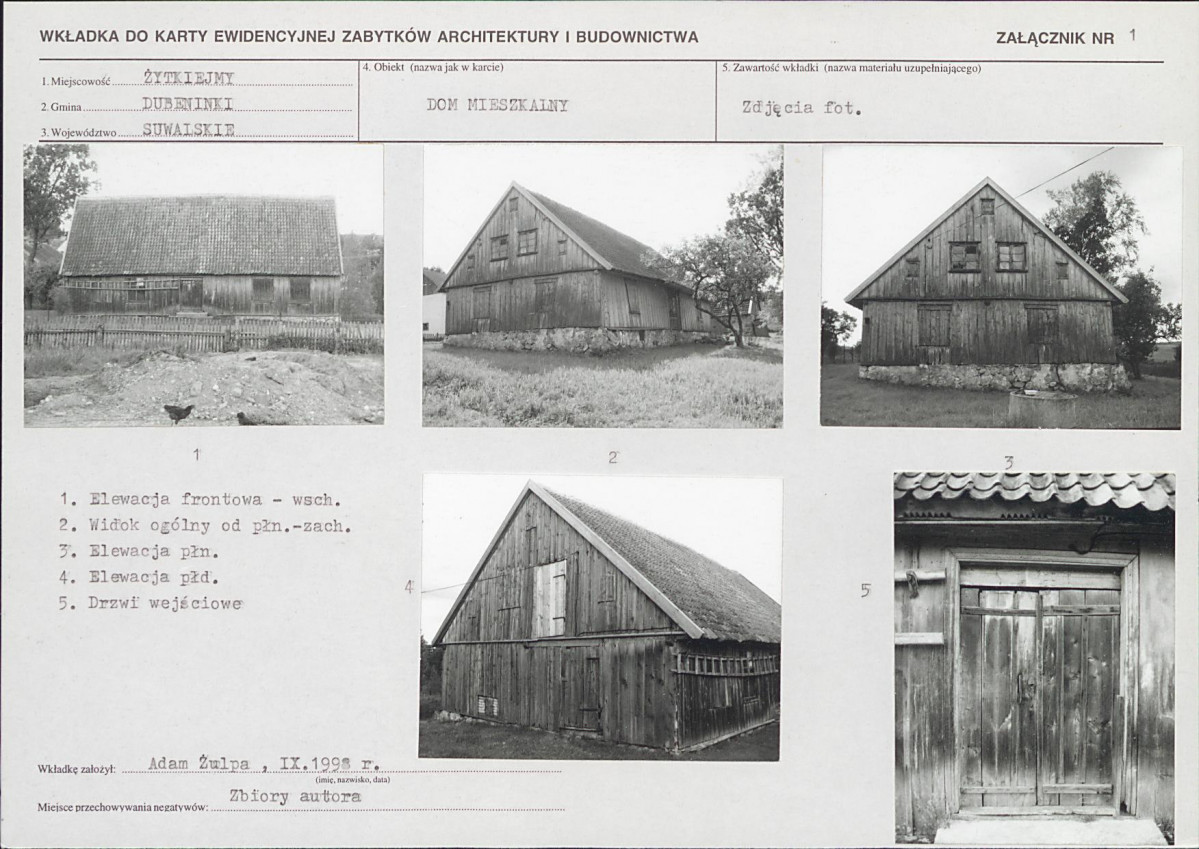 WKŁADKA DO KARTY EWIDENCYJNEJ ZABYTKÓW ARCHITEKTURY I BUDOWNICTWA
ZAŁĄCZNIK NR 1
1. Miejscowość ŻYTKIEJMY
2. Gmina DUBENINKI
3. Województwo SUWALSKIE
4. Obiekt (nazwa jak w karcie)
DOM MIESZKALNY
5. Zawartość wkładki (nazwa materiału uzupełniającego)
Zdjęcia fot.
1
2
3
1. Elewacja frontowa - wsch.
2. Widok ogólny od płn.-zach.
3. Elewacja płn.
4. Elewacja płd.
5. Drzwi wejściowe
4
5
Wkładkę założył: Adam Żulpa, IX.1998 r.
(imię, nazwisko, data)
Zbiory autora
Miejsce przechowywania negatywów: